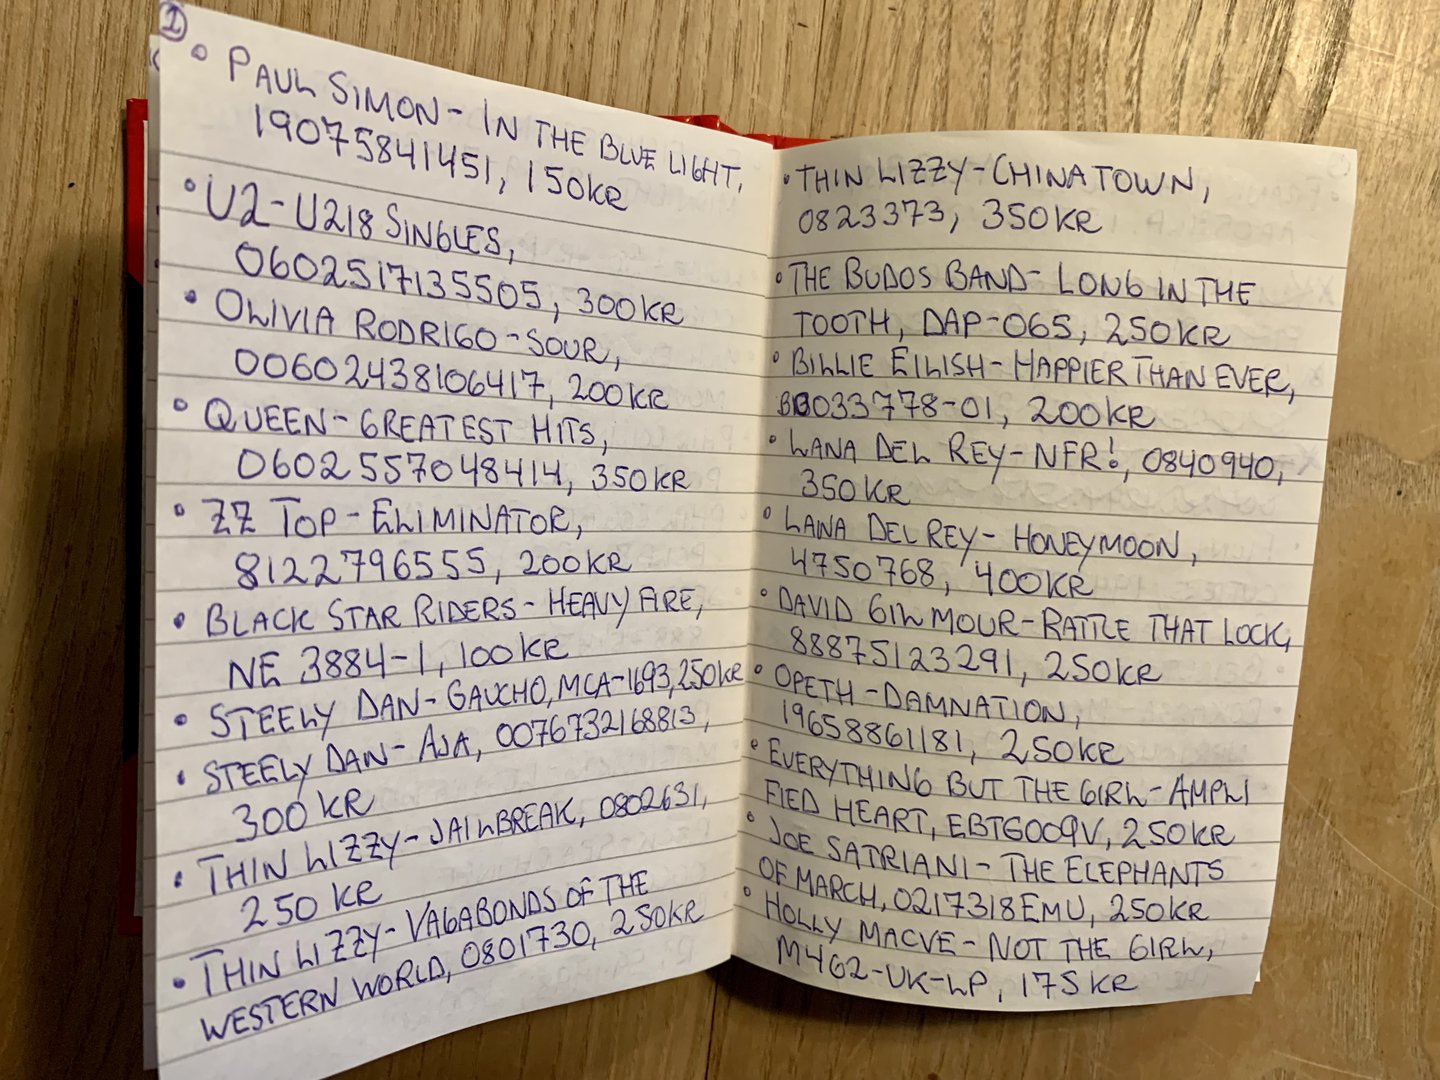 1
• PAUL SIMON - IN THE BLUE LIGHT,
19075841451, 150KR
• U2 - U218 SINGLES,
0602517135505, 300KR
• OLIVIA RODRIGO - SOUR,
00602438106417, 200KR
• QUEEN - GREATEST HITS,
0602557048414, 350KR
• ZZ TOP - ELIMINATOR,
8122796555, 200KR
• BLACK STAR RIDERS - HEAVY FIRE,
NE 3884-1, 100KR
• STEELY DAN - GAUCHO, MCA-1693, 250KR
• STEELY DAN - AJA, 0076732168813,
300KR
• THIN LIZZY - JAILBREAK, 0802631,
250 KR
• THIN LIZZY - VAGABONDS OF THE
WESTERN WORLD, 0801730, 250KR
• THIN LIZZY - CHINATOWN,
0823373, 350KR
• THE BUDOS BAND - LONG IN THE
TOOTH, DAP-065, 250KR
• BILLIE EILISH - HAPPIER THAN EVER,
B0033778-01, 200KR
• LANA DEL REY - NFR!, 0840940,
350KR
• LANA DEL REY - HONEYMOON,
4750768, 400KR
• DAVID GILMOUR - RATTLE THAT LOCK,
88875123291, 250KR
• OPETH - DAMNATION,
19658861181, 250KR
• EVERYTHING BUT THE GIRL - AMPLI
FIED HEART, EBTG009V, 250KR
• JOE SATRIANI - THE ELEPHANTS
OF MARCH, 0217318EMU, 250KR
• HOLLY MACVE - NOT THE GIRL,
M462-UK-LP, 175KR